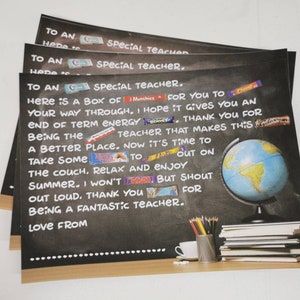 TO AN SPECIAL TEACHER.
TO AN SPECIAL TEACHER.
HERE IS
TO AN SPECIAL TEACHER.
HERE IS A BOX OF FOR YOU TO
YOUR WAY THROUGH. I HOPE IT GIVES YOU AN
END OF TERM ENERGY THANK YOU FOR
BEING THE TEACHER THAT MAKES THIS
A BETTER PLACE. NOW IT'S TIME TO
TAKE SOME TO OUT ON
THE COUCH. RELAX AND ENJOY
SUMMER. I WON'T BUT SHOUT
OUT LOUD. THANK YOU FOR
BEING A FANTASTIC TEACHER.
LOVE FROM